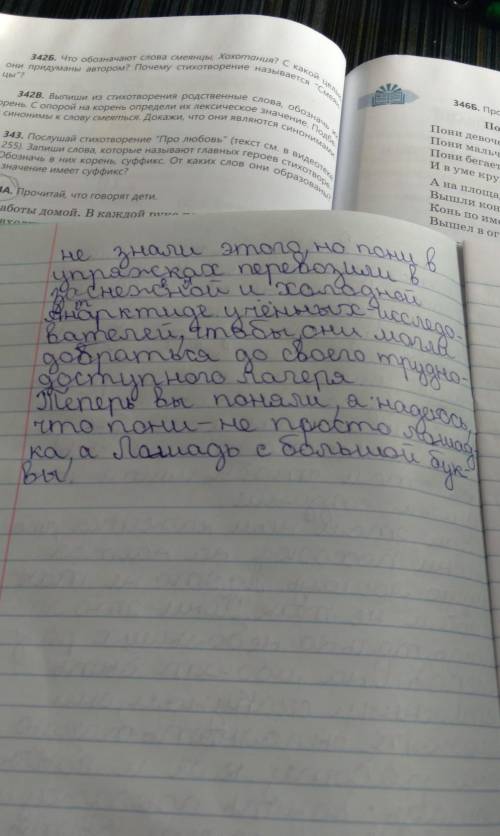 342Б. Что обозначают слова смеянцы, Хохотания? С какой целью
они придуманы автором? Почему стихотворение называется "Смеян
цы"?
342В. Выпиши из стихотворения родственные слова, обозначь их
корень. С опорой на корень определи их лексическое значение. Подбе
синонимы к слову смеяться. Докажи, что они являются синонимами.
343. Послушай стихотворение "Про любовь" (текст см. в видеотека
255). Запиши слова, которые называют главных героев стихотворе
Обозначь в них корень, суффикс. От каких слов они образованы?
значение имеет суффикс?
А. Прочитай, что говорят дети.
аботы домой. В каждой руке
346Б. Про
По
Пони девоче
Пони мальч
Пони бегает
И в уме кру
А на площа
Вышли кон
Конь по име
Вышел в ог
не знали этого, но пони в
упряжках перевозили в
заснеженной и холодной
Антарктиде учённых-исследо-
вателей, чтобы они могли
добраться до своего трудно-
доступного лагеря
Теперь вы поняли, а надеюсь,
что пони - не просто лошад-
ка, а Лошадь с большой бук-
вы.